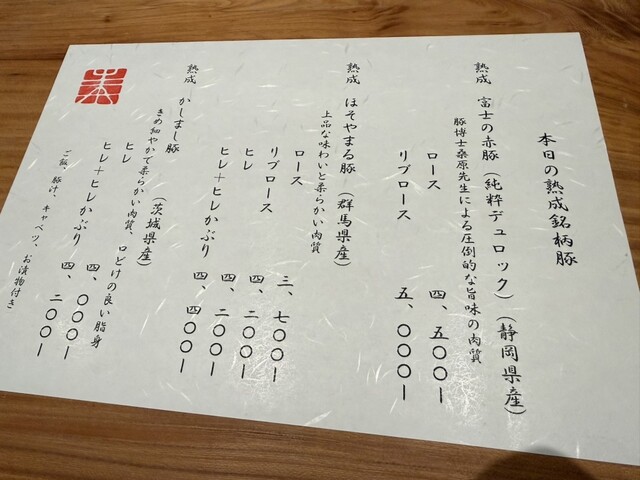 本日の熟成銘柄豚
熟成 富士の赤豚(純粋デュロック)(静岡県産)
豚博士桑原先生による圧倒的な旨味の肉質
ロース 四、五〇〇ー
リブロース 五、〇〇〇ー
熟成 ほそやまる豚(群馬県産)
上品な味わいと柔らかい肉質
ロース 三、七〇〇ー
リブロース 四、二〇〇ー
ヒレ 四、二〇〇ー
ヒレ+ヒレかぶり 四、四〇〇ー
熟成 かしまし豚(茨城県産)
きめ細やかで柔らかい肉質、口どけの良い脂身
ヒレ 四、〇〇〇ー
ヒレ+ヒレかぶり 四、二〇〇ー
ご飯、豚汁、キャベツ、お漬物付き